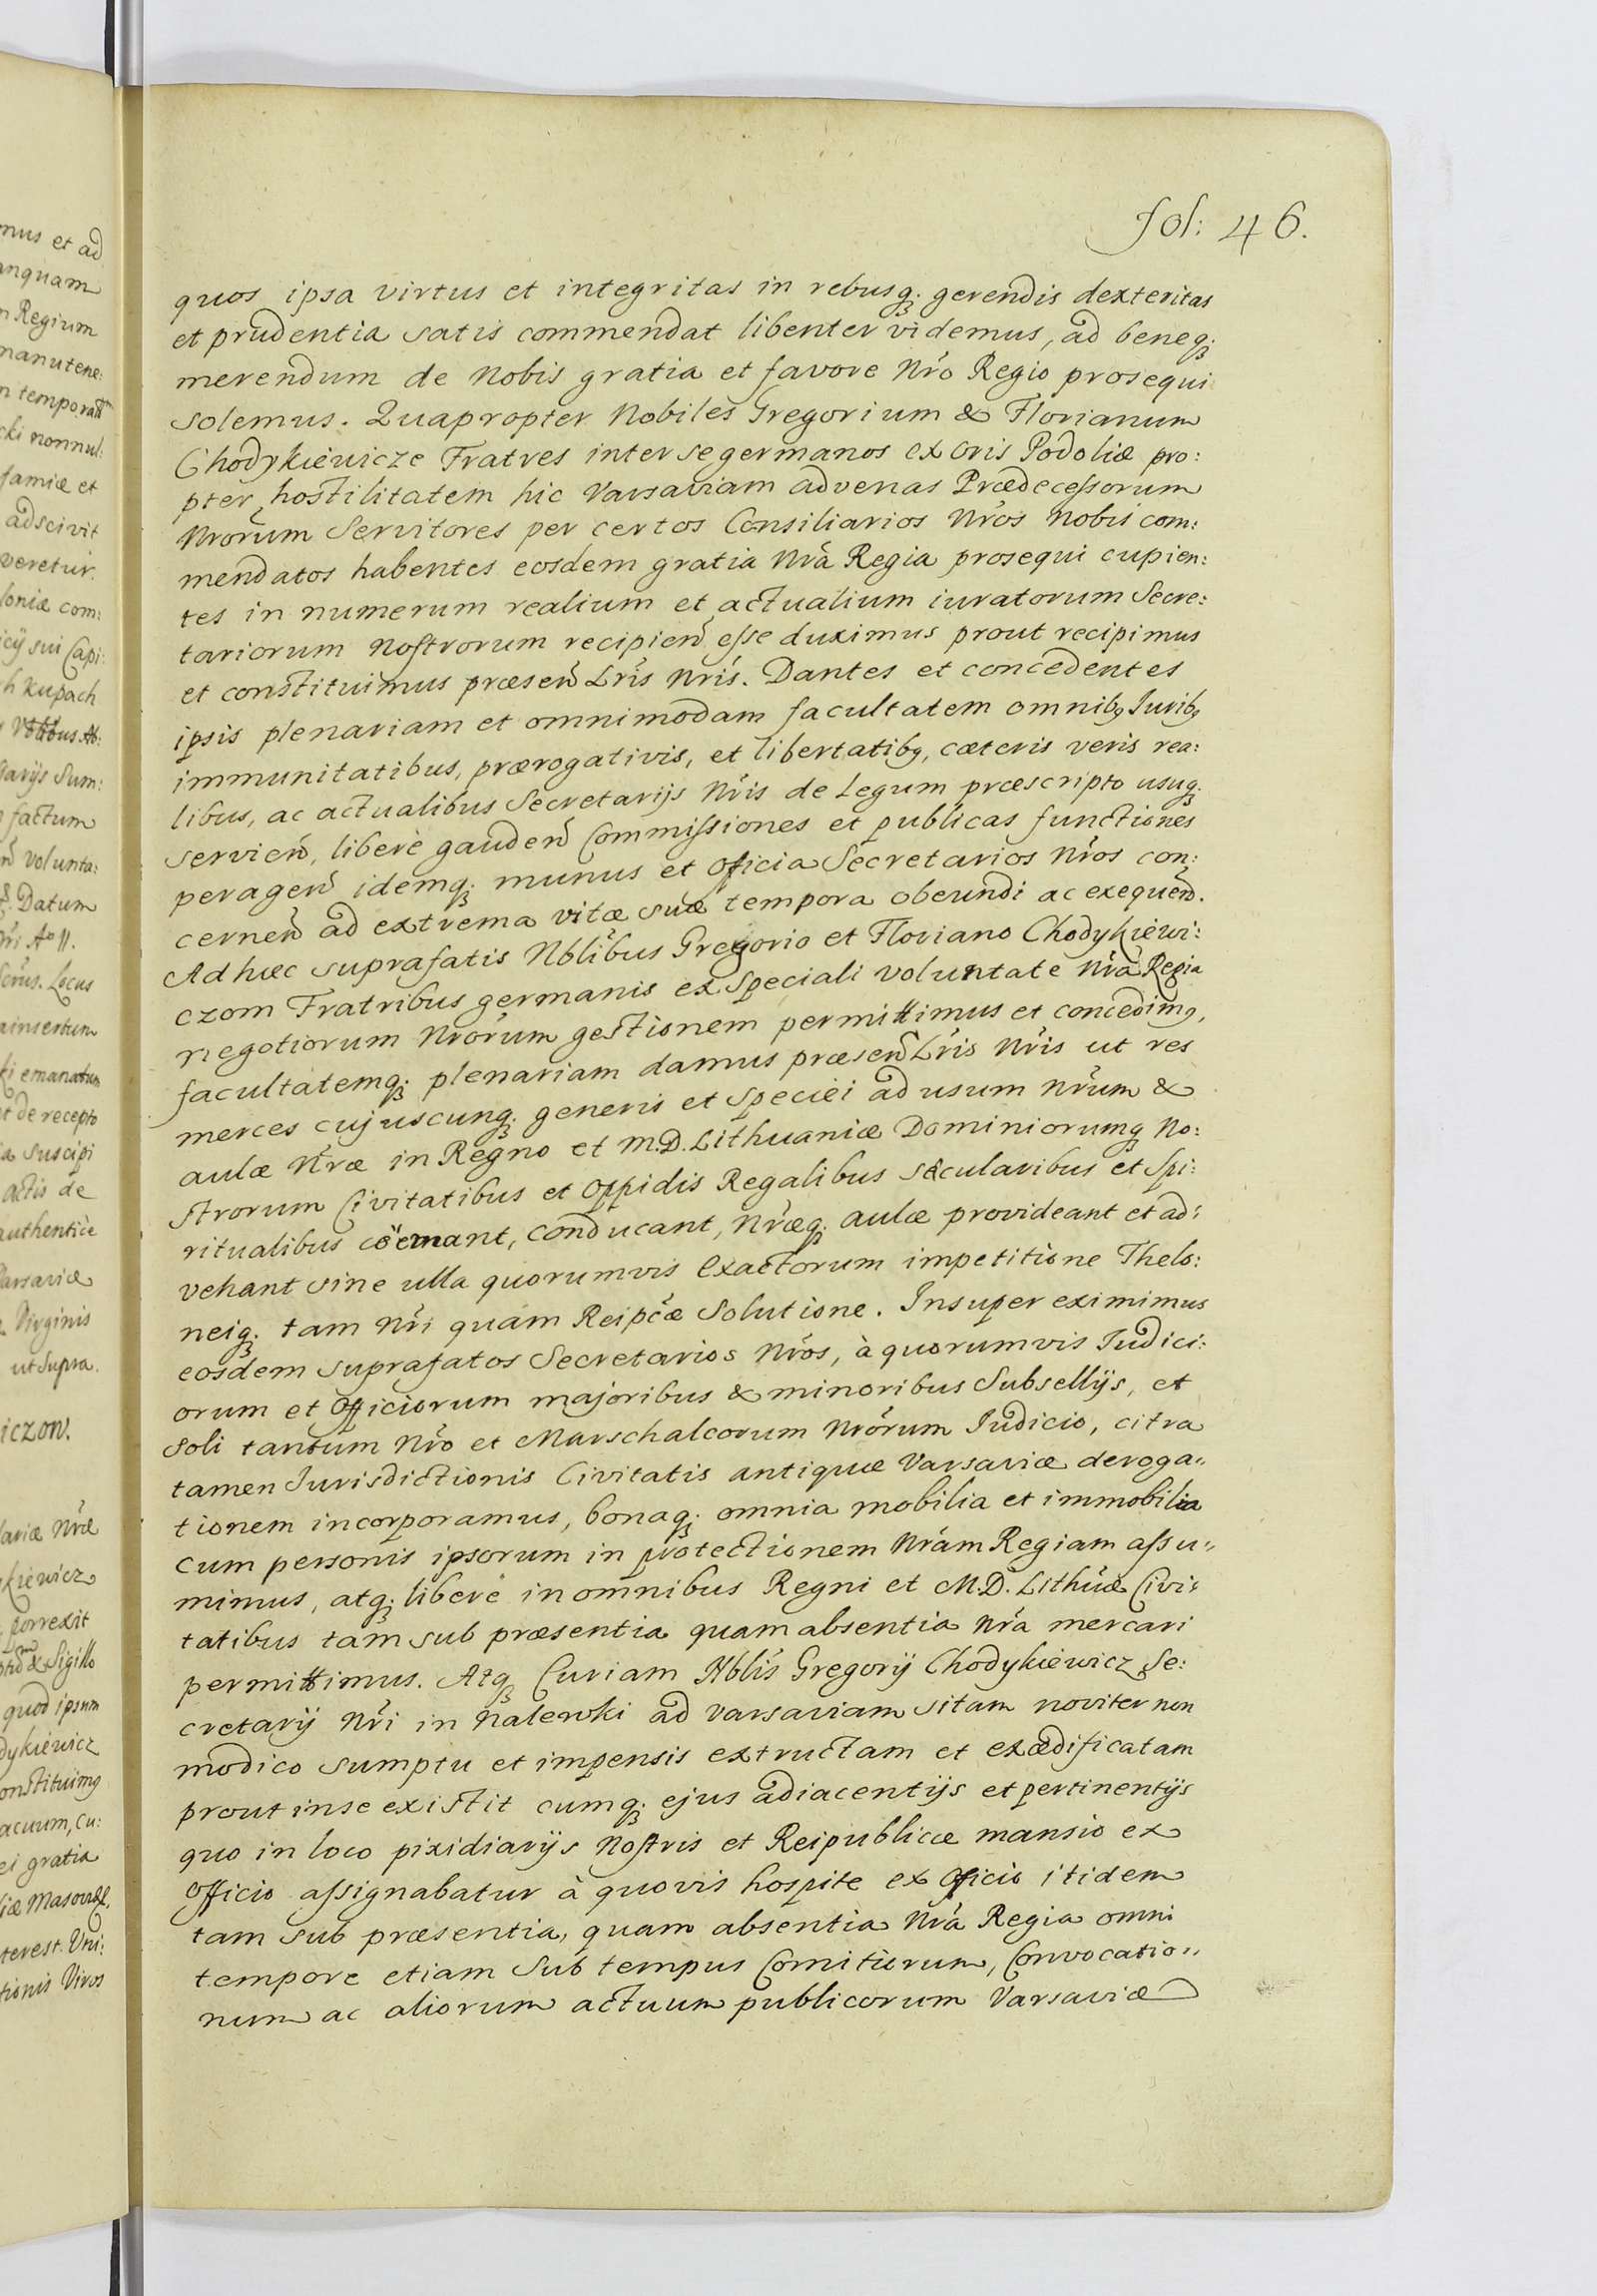 fol: 46.
quos ipsa virtus et integritas in rebusq; gerendis dexteritas
et prudentia satis commendat libenter videmus, ad beneq;
merendum de Nobis gratia et favore Nr̃o Regio prosequi
solemus. Quapropter Nobiles Gregorium & Florianum
Chodykiewicze Fratres inter se germanos ex oris Podoliæ pro:
pter hostilitatem hic Varsaviam advenas Prædecessorum
Nrõrum Servitores per certos Consiliarios Nr̃os Nobis com:
mendatos habentes eosdem gratia Nr̃a Regia prosequi cupien:
tes in numerum realium et actualium iuratorum Secre:
tariorum Nostrorum recipien̄ esse duximus prout recipimus
et constituimus præsen̄ Lr̃is Nr̃is. Dantes et concedentes
ipsis plenariam et omnimodam facultatem omnibꝰ Juribꝰ
immunitatibus, prærogativis, et libertatibꝰ, cæteris veris rea:
libus, ac actualibus Secretarijs Nr̃is de Legum præscripto usuq;
servien̄, liberè gauden̄ Commissiones et publicas functiones
peragen̄ idemq; munus et Officia Secretarios Nr̃os con:
cernen̄ ad extrema vitæ suæ tempora obeundi ac exequen̄.
Ad hæc suprafatis Nblĩbus Gregorio et Floriano Chodykiewi:
czom Fratribus germanis ex Speciali voluntate Nr̃a Regia
negotiorum Nrõrum gestionem permittimus et concedimꝰ,
facultatemq; plenariam damus præsen̄ Lr̃is Nr̃is ut res
merces cujuscunq; generis et Speciei ad usum Nr̃um &
aulæ Nr̃æ in Regno et M.D. Lithuaniæ Dominiorumq; No:
strorum Civitatibus et Oppidis Regalibus sæcularibus et Spi:
ritualibus cöemant, conducant, Nr̃æq; aulæ provideant et ad:
vehant sine ulla quorumvis Exactorum impetitione Thelo:
neiq; tam Nr̃i quam Reipcæ Solutione. Insuper eximimus
eosdem suprafatos Secretarios Nr̃os, à quorumvis Judici:
orum et Officiorum majoribus & minoribus Subsellijs, et
soli tantum Nr̃o et Marschalcorum Nrõrum Judicio, citra
tamen Jurisdictionis Civitatis antiquæ Varsaviæ deroga„
tionem incorporamus, bonaq; omnia mobilia et immobilia
cum personis ipsorum in protectionem Nr̃am Regiam assu„
mimus, atq; liberè in omnibus Regni et M.D. Lithũæ Civi:
tatibus tam sub præsentia quam absentia Nr̃a mercari
permittimus. Atq; Curiam Nblĩs Gregorij Chodykiewicz Se:
cretarij Nr̃i in Nalewki ad Varsaviam sitam noviter non
modico sumptu et impensis extructam et exædificatam
prout in se existit cumq; ejus adiacentijs et pertinentijs
quo in loco pixidiarijs Nostris et Reipublicæ mansio ex
Officio assignabatur à quovis hospite ex Officio itidem
tam sub præsentia, quam absentia Nr̃a Regia omni
tempore etiam Sub tempus Comitiorum, Convocatio„
num ac aliorum actuum publicorum Varsaviæ